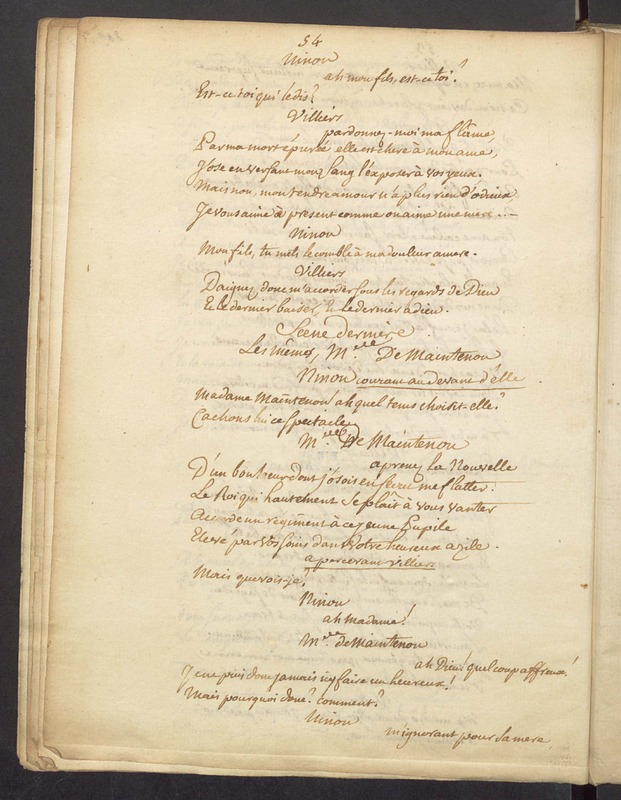 54
Ninon
ah mon fils, est-ce toi?
Est-ce toi qui le dis?
Villiers
pardonnez-moi ma flâme
Par ma mort épurée elle est chere à mon ame,
J'ose en versant mon sang l'exposer à vos yeux.
Mais non, mon tendre amour n'a plus rien d'odieux
Je vous aime à present comme on aime une mere...
Ninon
Mon fils, tu mets le comble à ma douleur amere.
Villiers
Daignez donc m'accorder sous les regards de Dieu
Et le dernier baiser, & le dernier adieu.
Scene derniére
Les mêmes, M.elle De Maintenon
Ninon courant au devant d'elle
Madame Maintenon! ah quel tems choisit-elle?
Cachons lui ce spectacle
M.elle De Maintenon
aprenez la Nouvelle
D'un bonheur dont j'osois en secret me flatter:
Le Roi qui hautement se plaît à vous vanter
Accorde un regiment à ce jeune Pupile
Elevé par vos soins dans votre heureux azile.
apercevant Villiers
Mais que vois-je!
Ninon
ah madame!
M.elle de Maintenon
ah Dieu! quel coup affreux!
Je ne puis donc jamais icy faire un heureux!
Mais pourquoi donc? comment?
Ninon
m'ignorant pour sa mere,